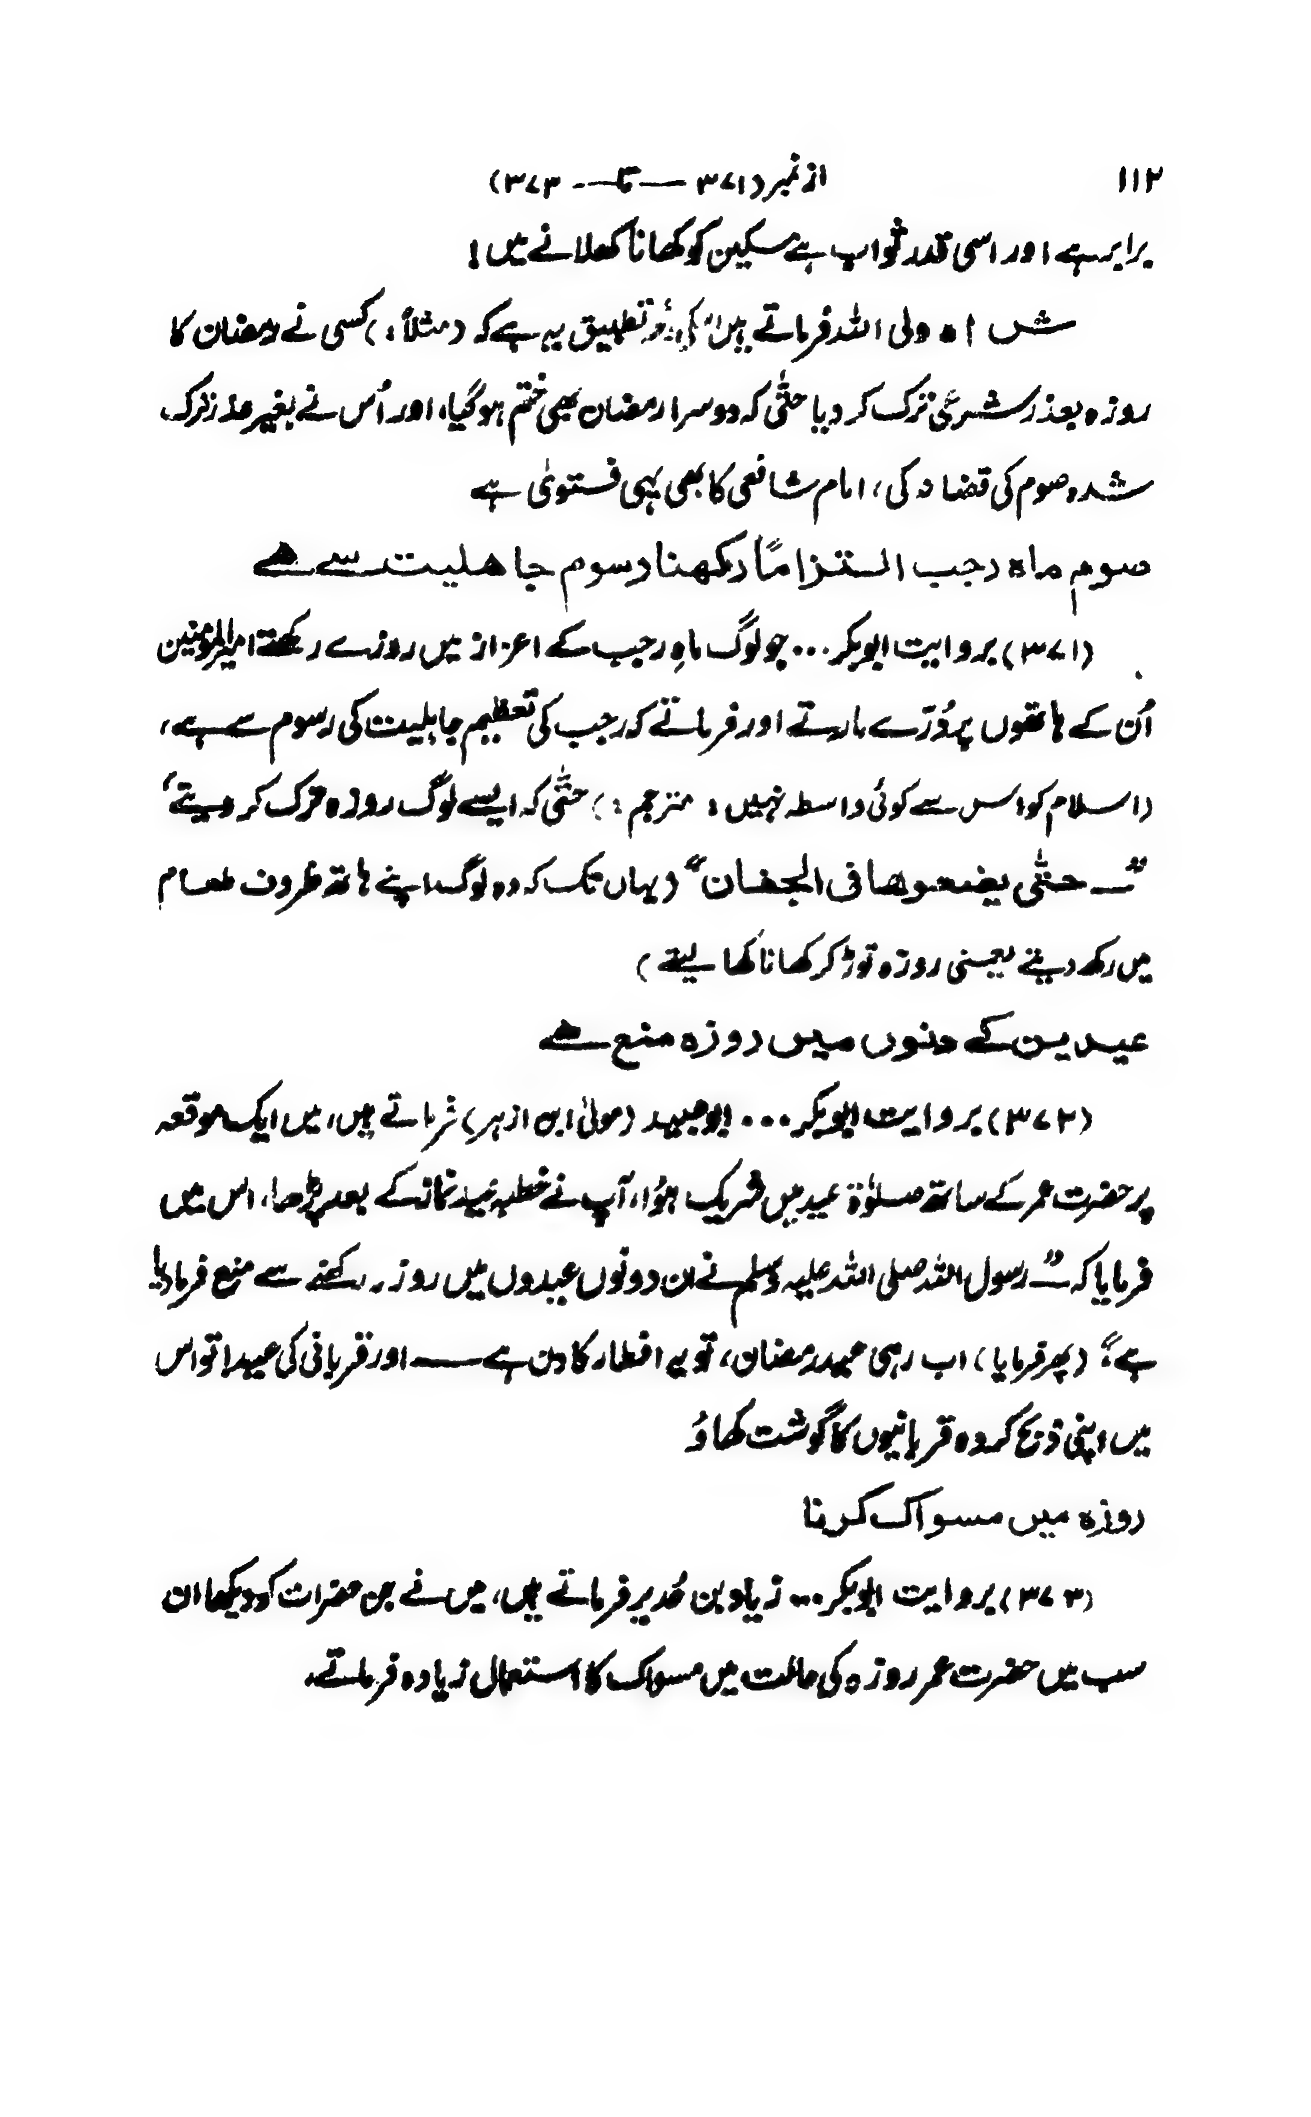 ۱۱۲ از نمبر (۳۷۱ — تا — ۳۷۳)
برابر ہے اور اسی قدر ثواب ہے مسکین کو کھانا کھلانے میں!
شاہ ولی اللہ فرماتے ہیں تطبیق یہ ہے کہ (مثلاً:) کسی نے رمضان کا
روزہ بعذر شرعی ترک کر دیا حتّٰی کہ دوسرا رمضان بھی ختم ہو گیا، اور اُس نے بغیر عذر ترک
شدہ صوم کی قضا نہ کی، امام شافعی کا بھی یہی فتویٰ ہے
صوم ماہ رجب التزاماً رکھنا رسوم جاھلیت سے ھے
(۳۷۱) بروایت ابوبکر... جو لوگ ماہِ رجب کے اعزاز میں روزے رکھتے امیر المؤمنین
اُن کے ہاتھوں پر دُرّے مارتے اور فرماتے کہ رجب کی تعظیم جاہلیت کی رسوم سے ہے،
(اسلام کو اس سے کوئی واسطہ نہیں: مترجم:) حتّٰی کہ ایسے لوگ روزہ ترک کر دیتے‘
”— حتّٰی یضعوھا فی الجفان“ (یہاں تک کہ وہ لوگ اپنے ہاتھ ظروف طعام
میں رکھ دیتے یعنی روزہ توڑ کر کھانا کھا لیتے)
عیدین کے دنوں میں روزہ منع ھے
(۳۷۲) بروایت ابوبکر... ابوعبید (مولیٰ ابن ازہر) فرماتے ہیں، میں ایک موقعہ
پر حضرت عمر کے ساتھ صلوٰۃ عید میں شریک ہوُا، آپ نے خطبہ عید نماز کے بعد پڑھا، اس میں
فرمایا کہ ”— رسول اللہ صلی اللہ علیہ وسلم نے ان دونوں عیدوں میں روزہ رکھنے سے منع فرمادیا
ہے“؛ (پھر فرمایا) اب رہی عید رمضان، تو یہ افطار کا دن ہے — اور قربانی کی عید! تو اس
میں اپنی ذبح کردہ قربانیوں کا گوشت کھاؤ
روزہ میں مسواک کرنا
(۳۷۳) بروایت ابوبکر... زیاد بن حُدیر فرماتے ہیں، میں نے جن حضرات کو دیکھا ان
سب میں حضرت عمر روزہ کی حالت میں مسواک کا استعمال زیادہ فرماتے،